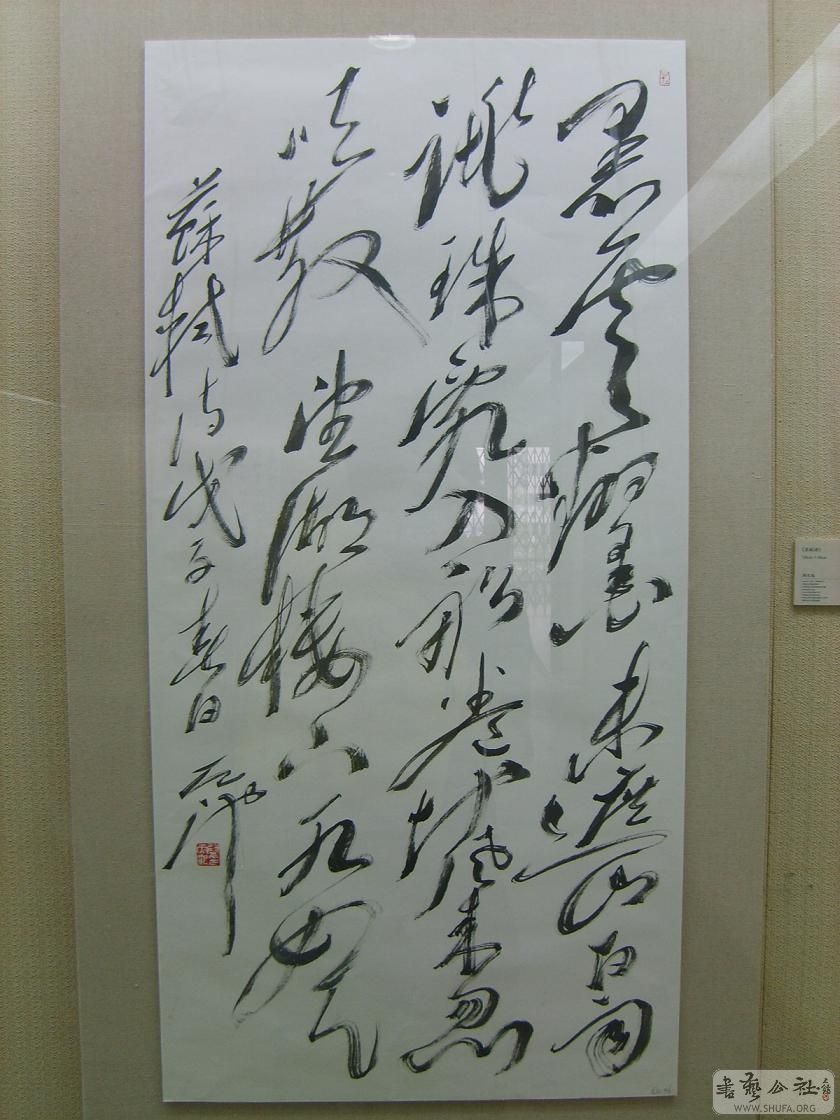 黑雲翻墨未遮山白雨
跳珠亂入船卷地風來忽
吹散望湖樓下水如天
蘇軾詩戊子春日
書藝公社
WWW.SHUFA.ORG